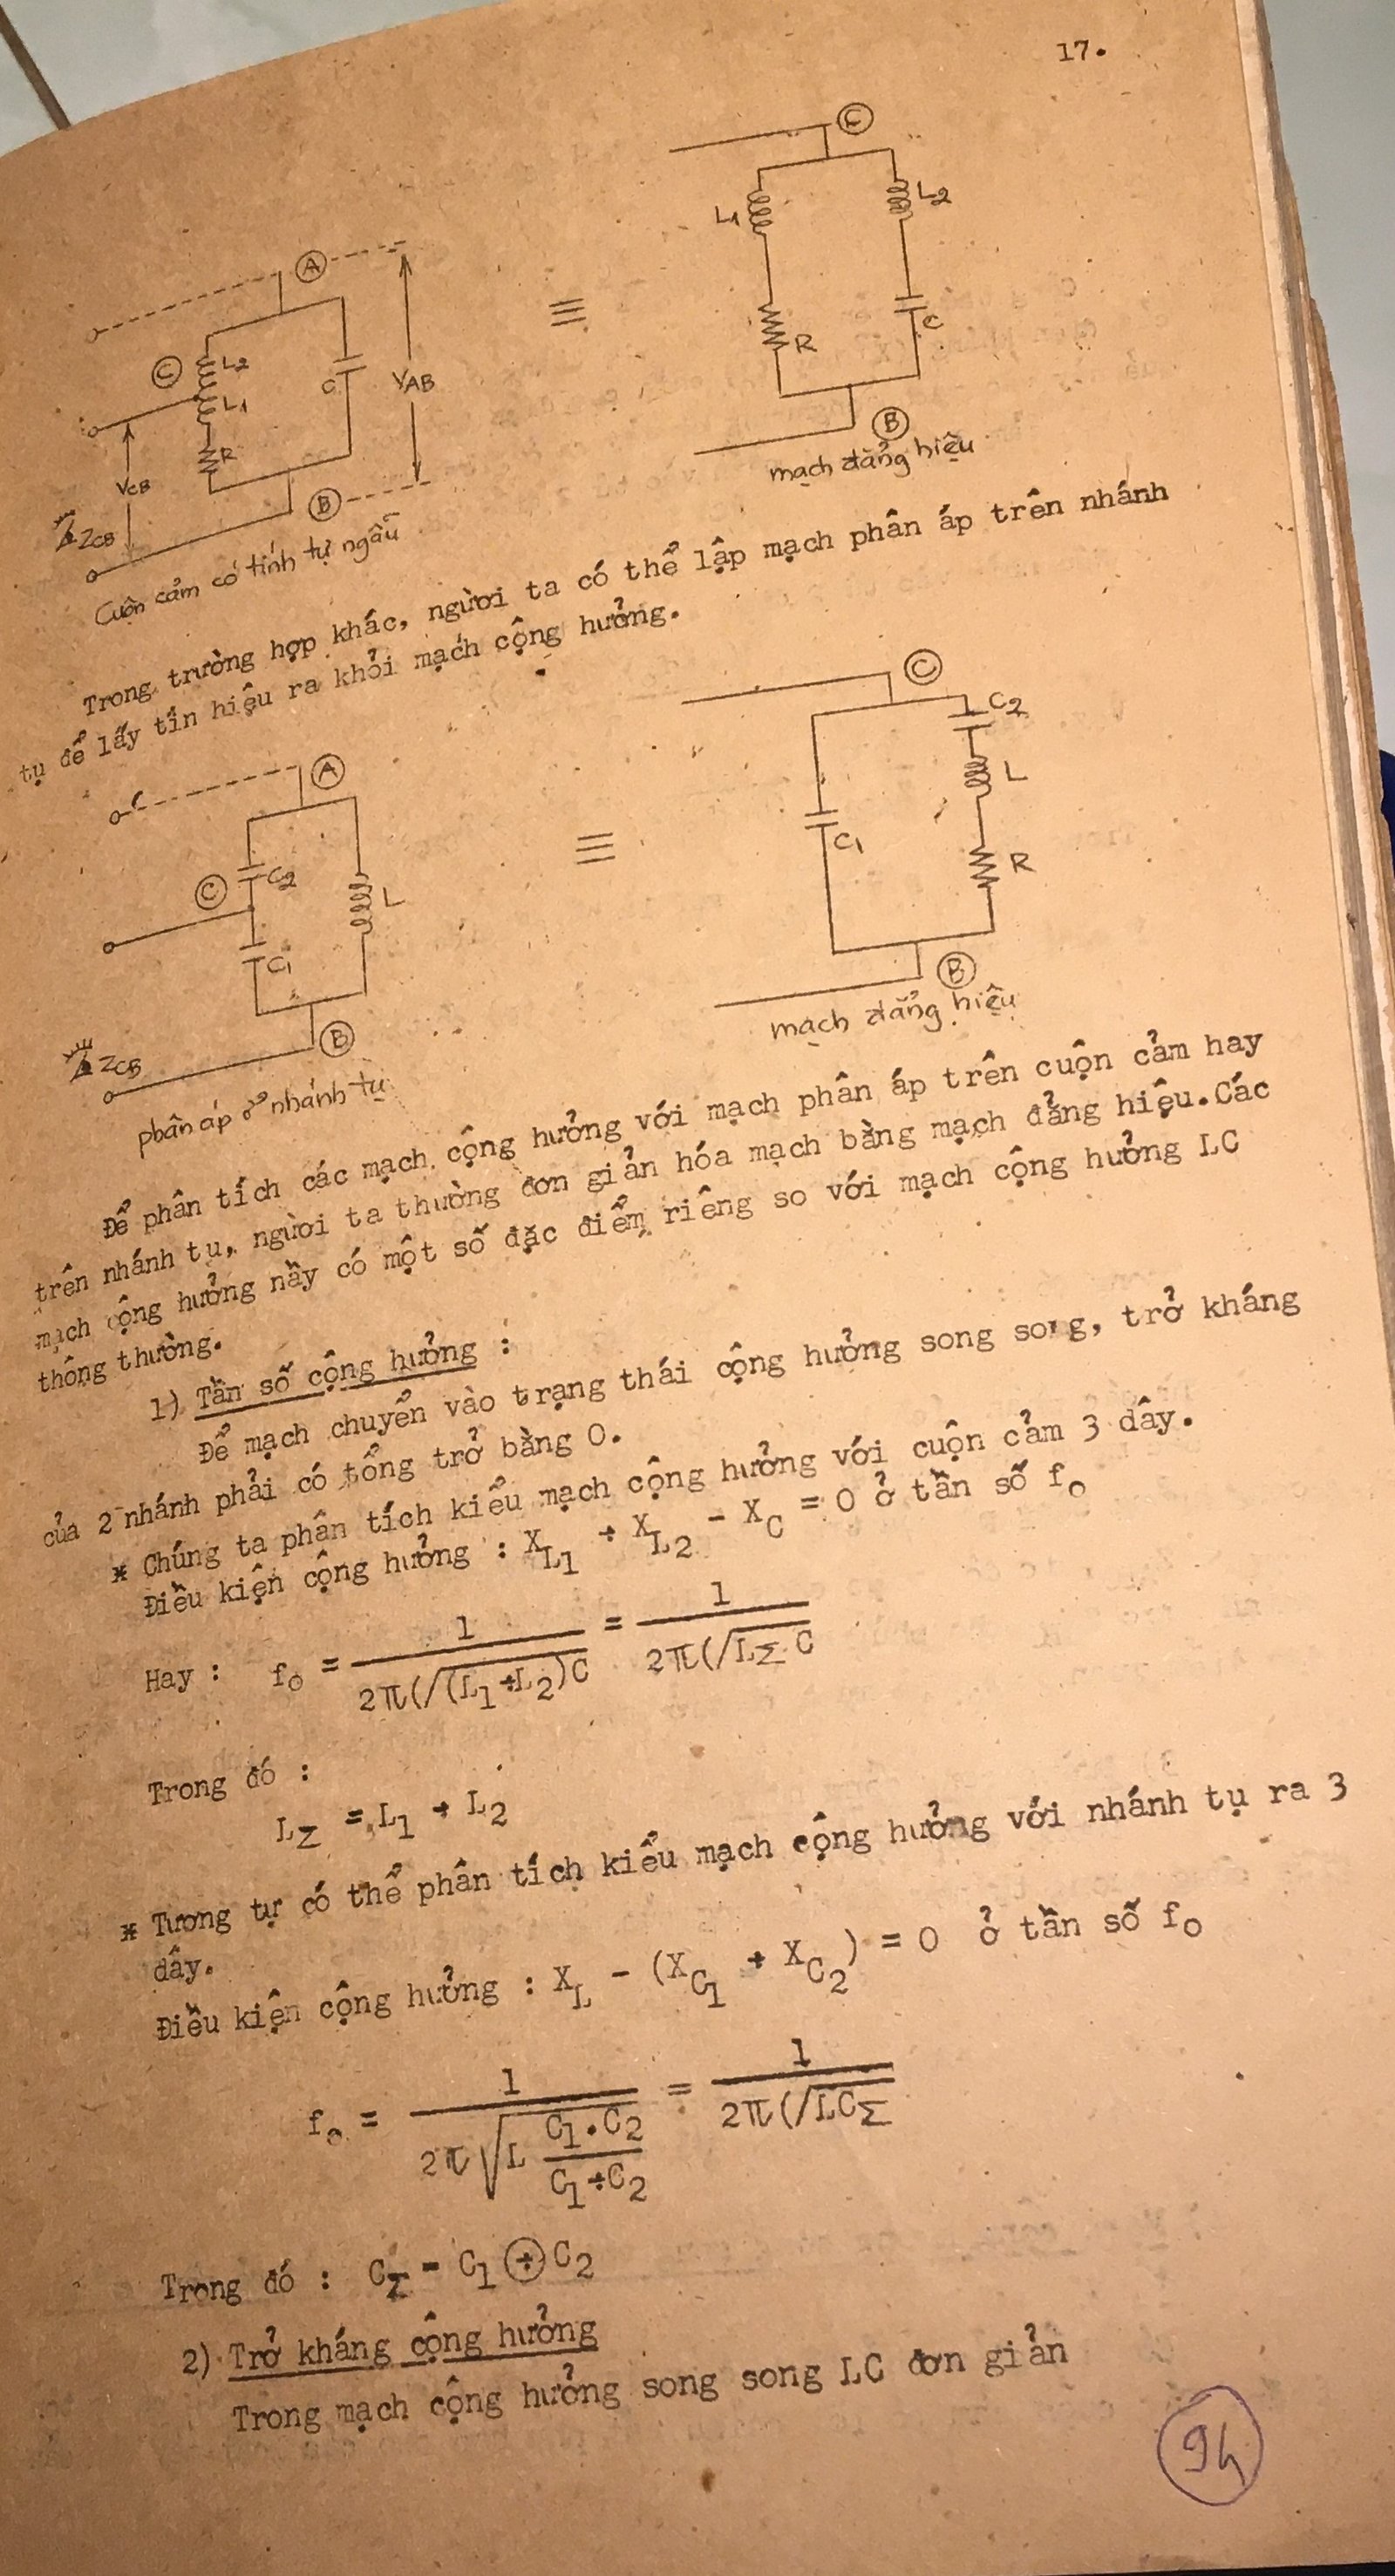 17.
A
C
L2
L1
R
C
VAB
VCB
B
ZCB
Cuộn cảm có tính tự ngẫu
≡
C
L1
L2
R
C
B
mạch đẳng hiệu
Trong trường hợp khác, người ta có thể lập mạch phân áp trên nhánh
tụ để lấy tín hiệu ra khỏi mạch cộng hưởng.
A
C
C2
C1
L
B
ZCB
phân áp ở nhánh tụ
≡
C
C2
L
C1
R
B
mạch đẳng hiệu
Để phân tích các mạch cộng hưởng với mạch phân áp trên cuộn cảm hay
trên nhánh tụ, người ta thường đơn giản hóa mạch bằng mạch đẳng hiệu. Các
mạch cộng hưởng nầy có một số đặc điểm riêng so với mạch cộng hưởng LC
thông thường.
1) Tần số cộng hưởng :
Để mạch chuyển vào trạng thái cộng hưởng song song, trở kháng
của 2 nhánh phải có tổng trở bằng 0.
* Chúng ta phân tích kiểu mạch cộng hưởng với cuộn cảm 3 dây.
Điều kiện cộng hưởng : XL1 + XL2 - XC = 0 ở tần số fo
Hay : fo = 1 / 2π(/(L1+L2)C = 1 / 2π(/LΣ C
Trong đó :
LΣ = L1 + L2
* Tương tự có thể phân tích kiểu mạch cộng hưởng với nhánh tụ ra 3
dây.
Điều kiện cộng hưởng : XL - (XC1 + XC2) = 0 ở tần số fo
fo = 1 / 2π√L C1.C2 / C1+C2 = 1 / 2π(/LCΣ
Trong đó : CΣ = C1 ⊕ C2
2) Trở kháng cộng hưởng
Trong mạch cộng hưởng song song LC đơn giản
94